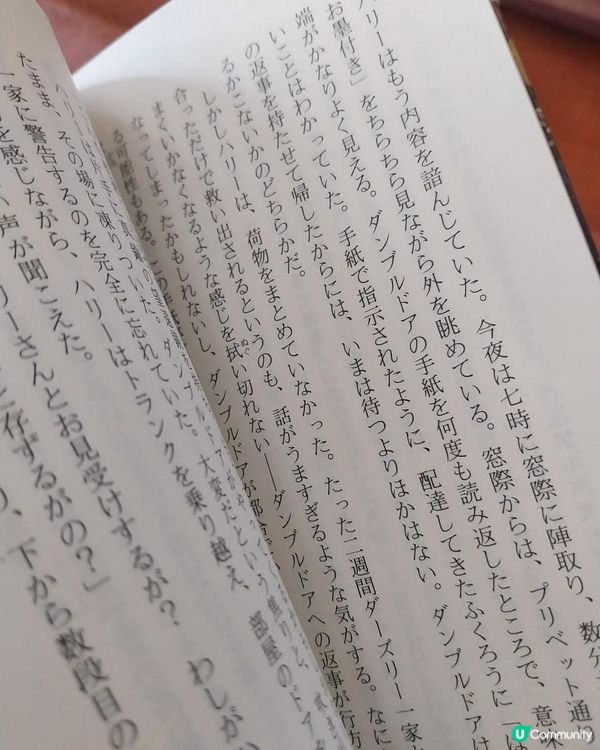 ハリーはもう内容を諳んじていた。今夜は七時に窓際に陣取り、数分
お墨付き」をちらちら見ながら外を眺めている。窓際からは、プリベット通り
端がかなりよく見える。ダンブルドアの手紙を何度も読み返したところで、意
いことはわかっていた。手紙で指示されたように、配達してきたふくろうに「
の返事を持たせて帰したからには、いまは待つよりほかはない。ダンブルドアは
るかこないかのどちらかだ。
しかしハリーは、荷物をまとめていなかった。たった二週間ダーズリー一家
合っただけで救い出されるというのも、話がうますぎるような気がする。なに
まくいかなくなるような感じを拭い切れない――ダンブルドアへの返事が行方
ぬぐ
なってしまったかもしれないし、ダンブルドアが都合で
る可能性もある。この手紙
ハリーは片手に
たまま、その場に凍りついた。
大変だという
一家に警告するのを完全に忘れていた。
を感じながら、ハリーはトランクを乗り越え、部屋のドア
声が聞こえた。
リーさんとお見受けするが？わしが
と存ずるがの？」
り、下から数段目の
U Community